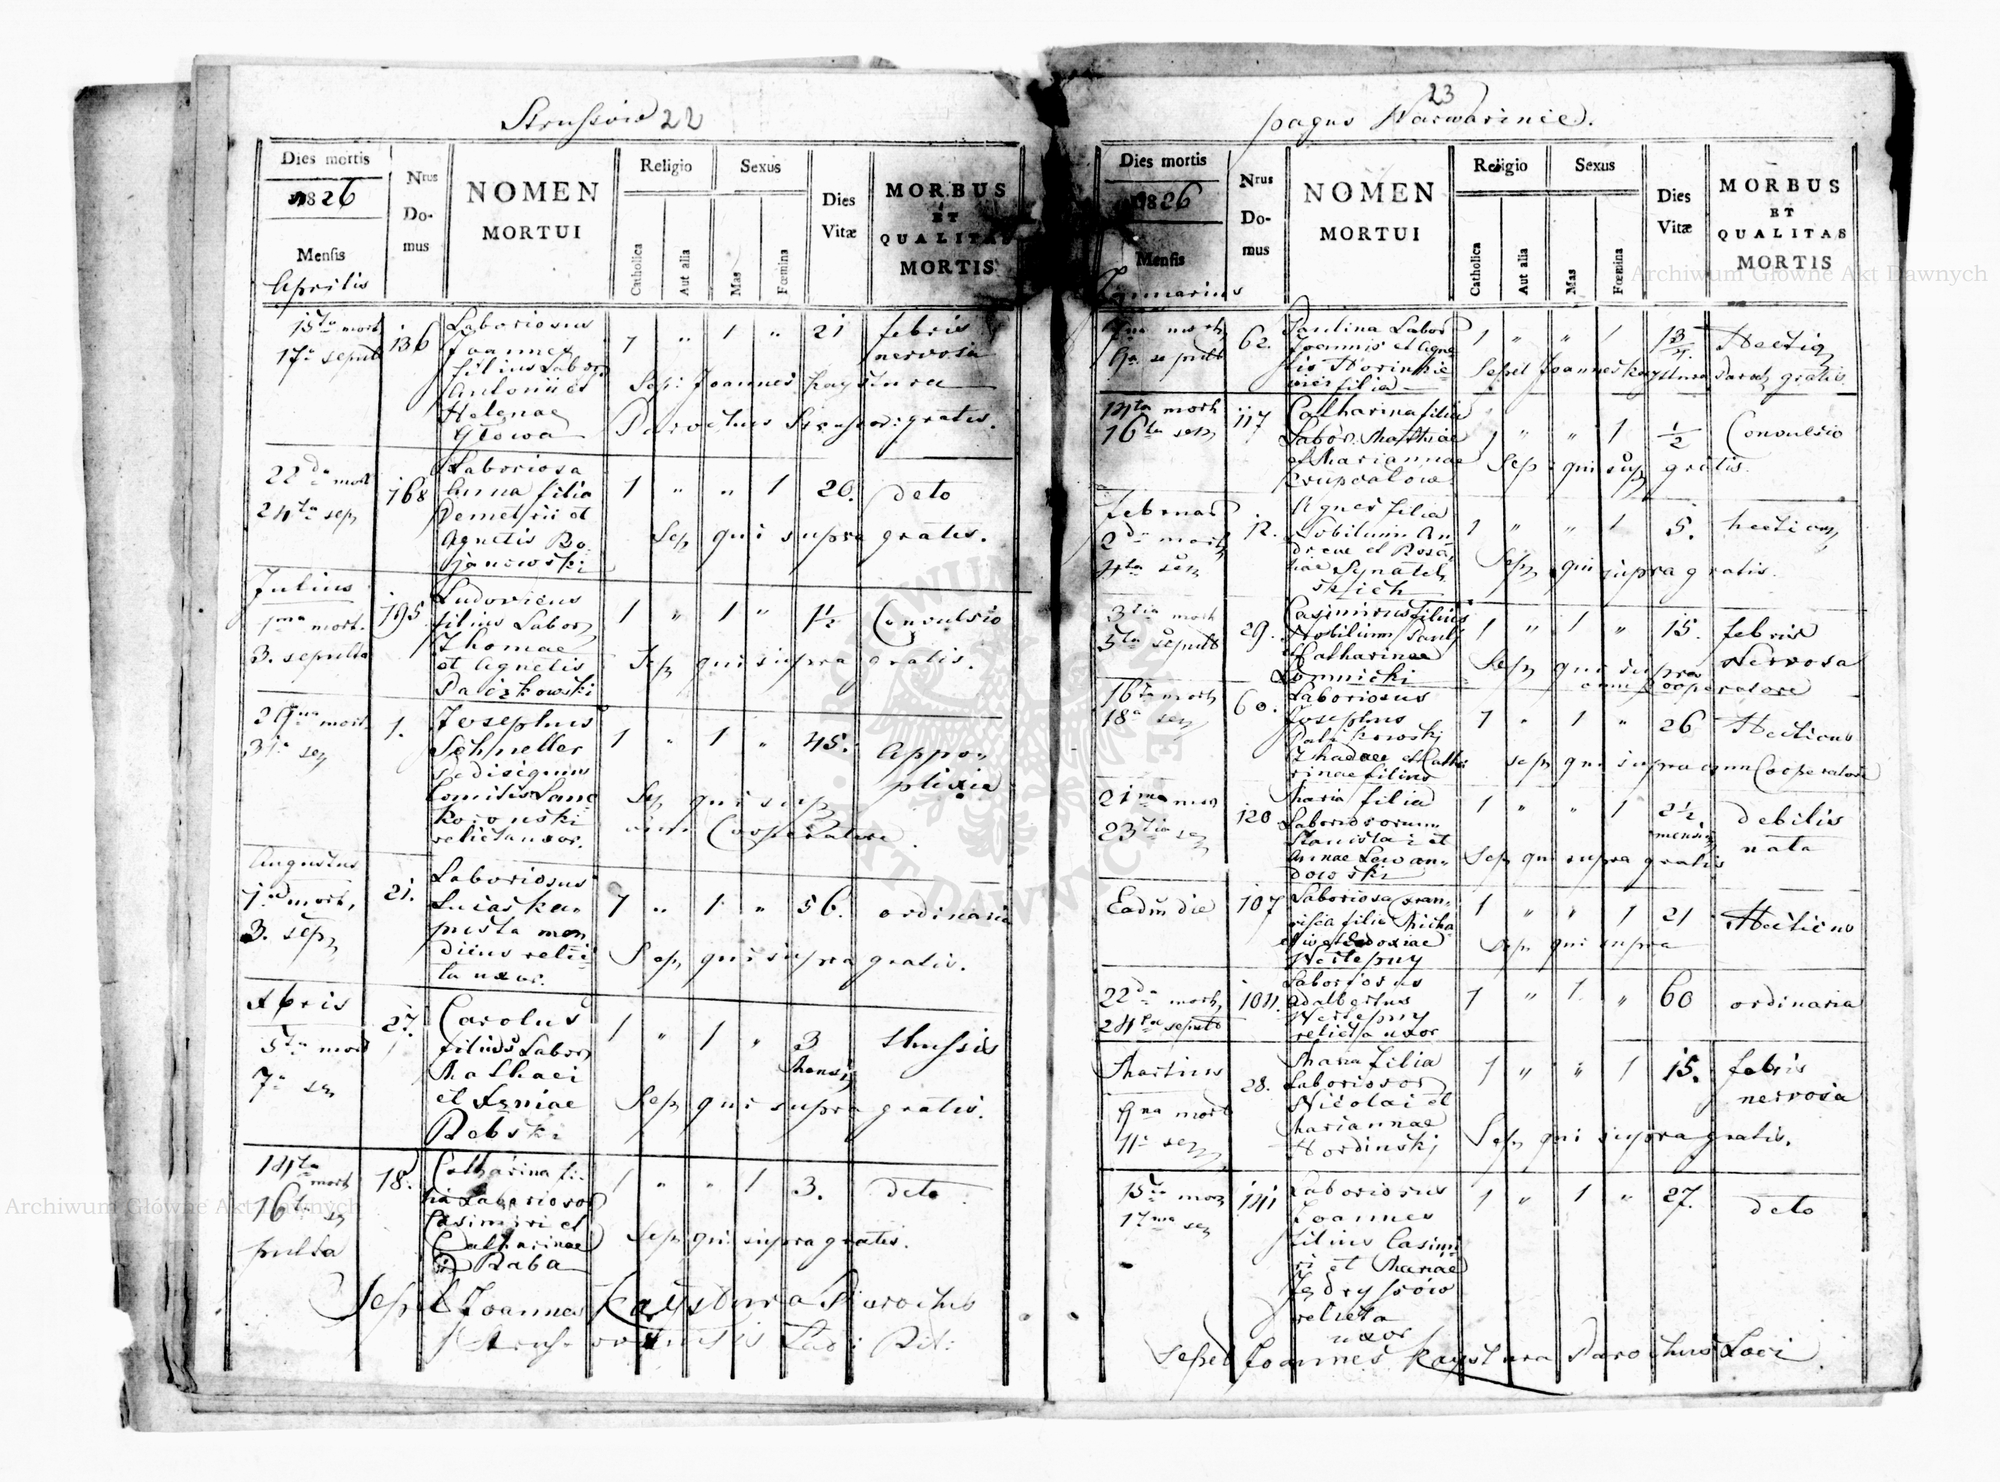 Strussow 22
Dies mortis
1826
Mensis
Aprilis
Nrus
Do-
mus
NOMEN
MORTUI
Religio
Catholica
Aut alia
Sexus
Mas
Fœmina
Dies
Vitæ
MORBUS
ET
QUALITAS
MORTIS
15ta mort
17a sepult
136
Laboriosus
Joannes
filius Labor
Antonii et
Helenae
Glowa
1 " 1 " 21
febris
nervosa
Sep: Joannes Kaystura
Parochus Strussov: gratis.
22da mort
24ta sep
168
Laboriosa
Anna filia
Demetrii et
Agnetis Bo
janowski
1 " " 1 20.
deto
Sep qui supra gratis.
Julius
1ma mort.
3. sepulta
195
Ludovicus
filius Labor
Thomae
et Agnetis
Paczkowski
1 " 1 " 1½
Convulsio
Sep qui supra gratis.
29na mort.
31a sep
1.
Josephus
Schmeller
Comitis Lanc
koronski
relicta uxor.
1 " 1 " 45.
Appo
plexia
Sep qui sup
cum Cooperatore.
Augustus
1a mort,
3. sep
21.
Laboriosus
Lucas Ka
pusta men
dicus relic
ta uxor.
1 " 1 " 56.
ordinaria
Sep qui supra gratis.
Xbris
5ta mort
7a sep
27.
Carolus
filius Labor
Mathaei
et Xeniae
Rebski
1 " 1 " 3
Mensis
thussis
Sep qui supra gratis.
14ta mort
16ta se
pulta
18.
Catharina fi
lia Laborioso
Casimiri et
Catharinae
Baba
1 " " 1 3.
deto
Sep qui supra gratis.
Sepel Joannes Kaystura Parochus
23
pagus Warwarince.
Dies mortis
1826
Mensis
Januarius
Nrus
Do-
mus
NOMEN
MORTUI
Religio
Catholica
Aut alia
Sexus
Mas
Fœmina
Dies
Vitæ
MORBUS
ET
QUALITAS
MORTIS
62.
Paulina Labor
Joannis et Agne
tis
filia
1 " " 1
Hectiq
Sepel Joannes Kaystura Paroch gratis.
14ta mort
16ta sep
117
Catharina filia
Labor. Matthiae
et Mariannae
1 " " 1 ½
Convulsio
Sep: qui sup gratis.
februar
2da mort
4ta sep
12.
Agnes filia
Nobilium An
dreae et Rosa
liae
1 " " 1 5.
hectica
Sep qui supra gratis.
3tia mort
5ta sepult
29.
Casimirus filius
Nobilium Pauli
Catharinae
Lomnicki
1 " 1 " 15.
febris
Nervosa
Sep qui supra
cum Cooperatore
16ta mort
18a sep
60.
Laboriosus
Josephus
Thadae et Catha
rinae filius
1 " 1 " 26
Hecticus
sep qui supra cum Cooperatore
21ma mor
23tia sep
120
Maria filia
Laboriosorum
Stanislai et
Annae Lewan
dowski
1 " " 1 2½
mensis
debilis
nata
Sep qui supra gratis
Eadem die
107
Laboriosa Fran
cisca filia Micha
elis et Eudoxiae
Netlepny
1 " " 1 21
Hecticus
Sep qui supra
22da mort,
24ta sepult
Laboriosus
Adalbertus
Netlepny
relicta uxor
1 " 1 " 60
ordinaria
Martius
9na mort
11a sep
28.
Maria filia
Laboriosor
Nicolai et
Mariannae
Hordinski
1 " " 1 15.
febris
nervosa
Sep qui supra gratis.
15ta mor
17ma sep
141
Laboriosus
Joannes
filius Casimi
ri et Mariae
relicta
uxor
1 " 1 " 27.
deto
Sepel Joannes Kaystura Parochus Loci.
Archiwum Główne Akt Dawnych
Archiwum Główne Akt Dawnych
ARCHIWUM GŁÓWNE AKT DAWNYCH